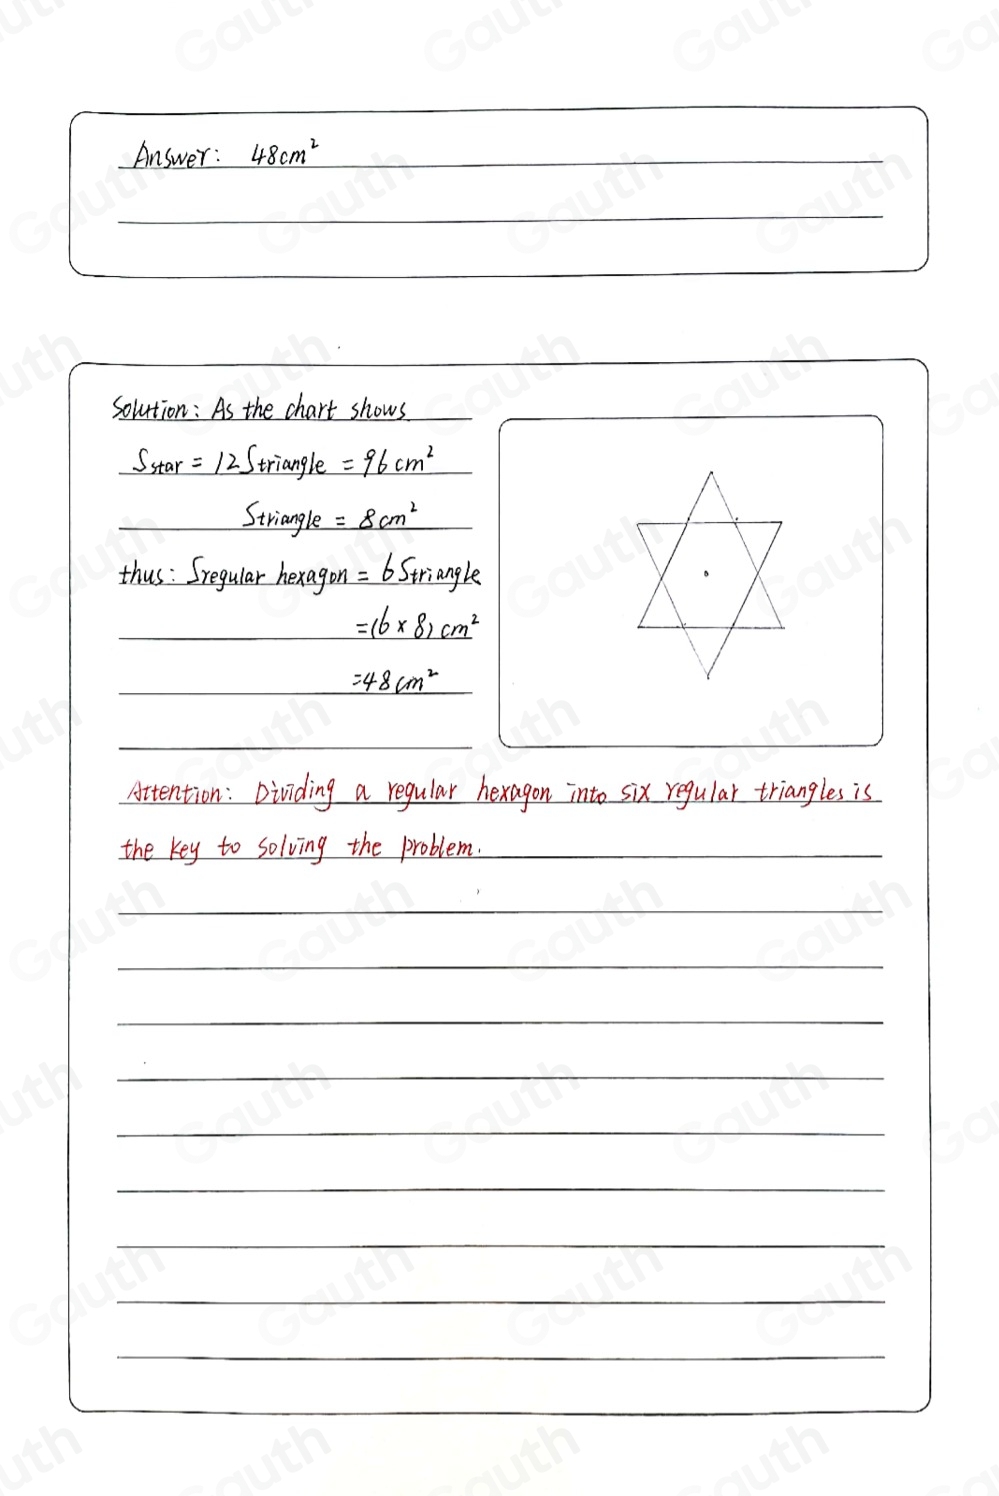 Answer: 48cm²
Solution: As the chart shows
Sstar = 12Striangle = 96cm²
Striangle = 8cm²
thus: Sregular hexagon = 6Striangle
=(6×8)cm²
=48cm²
Attention: Dividing a regular hexagon into six regular triangles is
the key to solving the problem.
Gauth